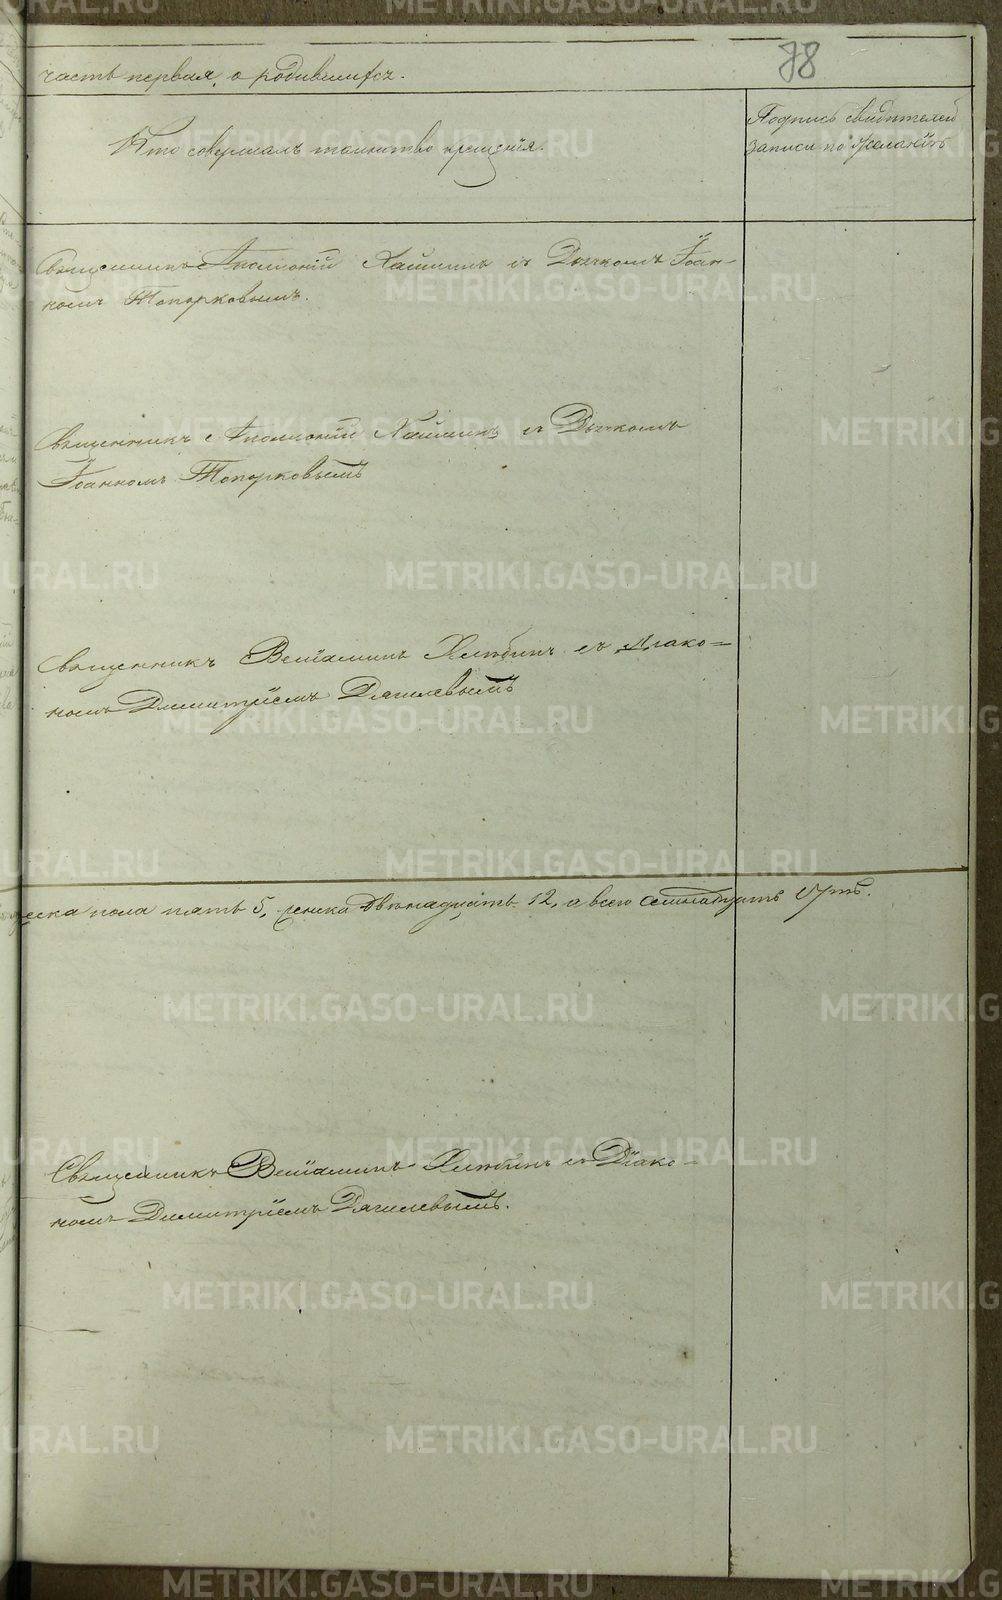 78
часть первая, о родившихся.
Кто совершалъ таинство крещенія.
Подпись свидѣтелей
записи по желанію
Священникъ Аполлоній Хайминъ съ Дьячкомъ Іоан-
номъ Топорковымъ.
Священникъ Аполлоній Хайминъ съ Дьячкомъ
Іоанномъ Топорковымъ
Священникъ Веніаминъ Хлюбинъ съ Діако=
номъ Димитріемъ Дягилевымъ
ческа пола пять 5, женска двенадцать 12, а всего семнадцать 17ть.
Священникъ Веніаминъ Хлюбинъ съ Діако-
номъ Димитріемъ Дягилевымъ.
METRIKI.GASO-URAL.RU